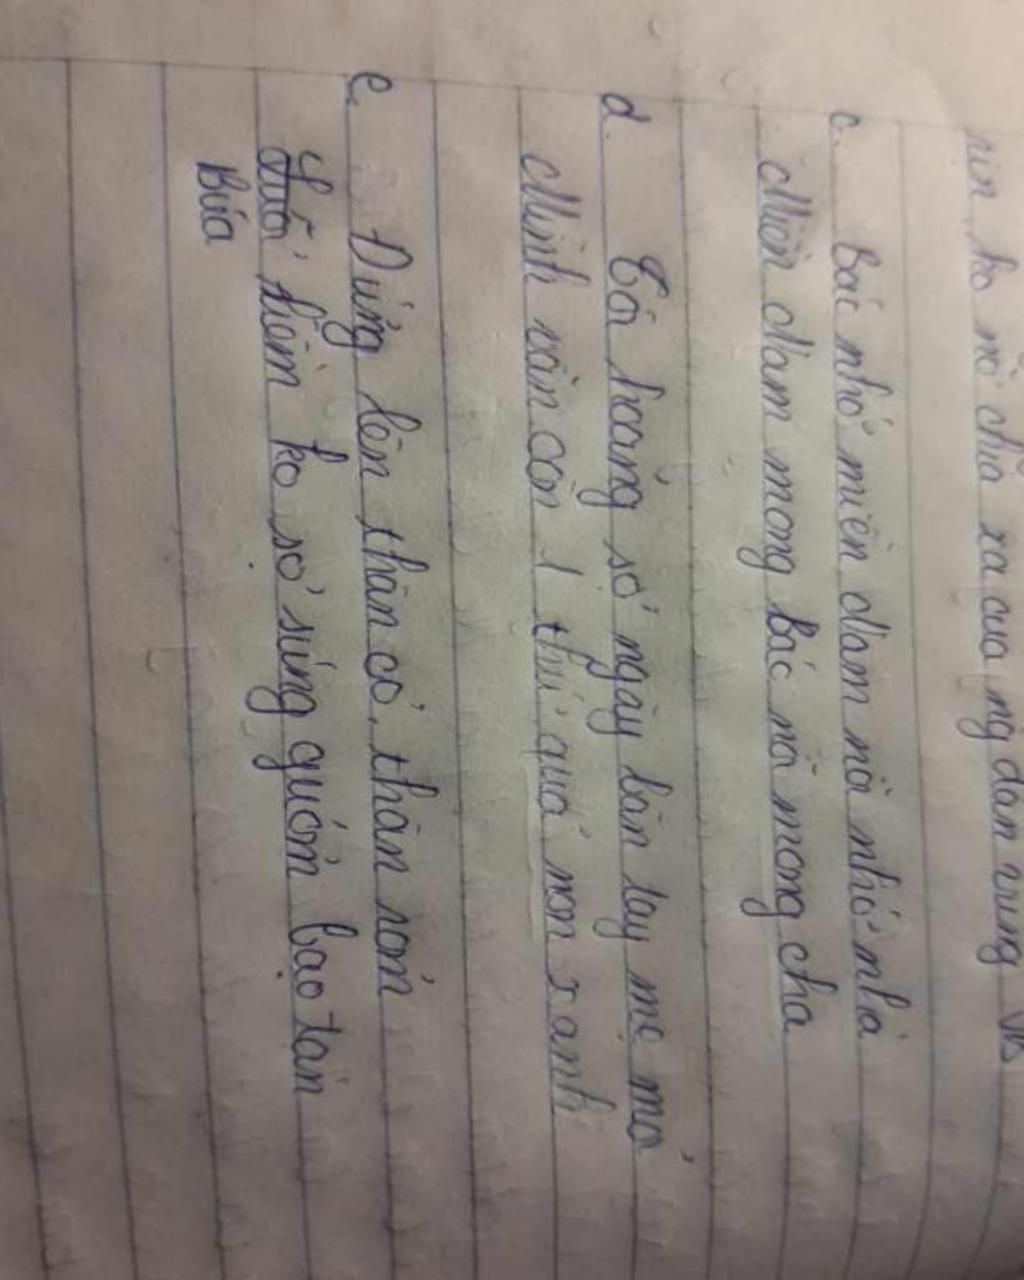 ko nỗi chia xa của ng dân vùng VN
c. Bác nhớ miền Nam nỗi nhớ nhà
Miền Nam mong Bác nỗi mong cha
d. Tôi hoảng sợ ngày bàn tay mẹ mỏi
Mình vẫn còn 1 thứ quả non xanh
e. Đứng lên thân cỏ, thân rơm
Búa liềm ko sợ súng gươm bạo tàn
Búa